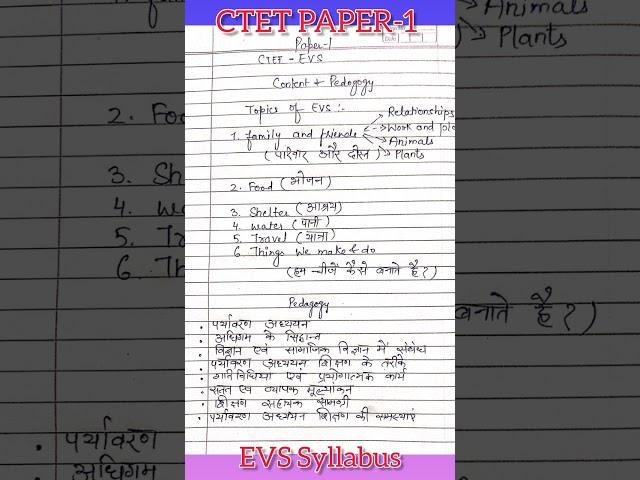 CTET PAPER-1
Paper-1
CTET - EVS
Content + Pedagogy
Topics of EVS :-
Relationships
1. family and friends Work and
Animals
(परिवार और दोस्त) Plants
2. Food (भोजन)
3. Shelter (आश्रय)
4. water (पानी)
5. Travel (यात्रा)
6. Things we make & do
(हम चीजें कैसे बनाते है?)
Pedagogy
• पर्यावरण अध्ययन
• अधिगम के सिद्धान्त
• विज्ञान एवं सामाजिक विज्ञान में संबंध
• पर्यावरण अध्ययन शिक्षण के तरीके
• गतिविधियां एवं प्रयोगात्मक कार्य
• सतत एवं व्यापक मूल्यांकन
• शिक्षण सहायक सामग्री
• पर्यावरण अध्ययन शिक्षण की समस्याएं
EVS Syllabus
Animals
Plants
2. Food
3. Shel
4. wa
5. Tra
6. Th
बनाते है?)
• पर्यावरण
अधिगम